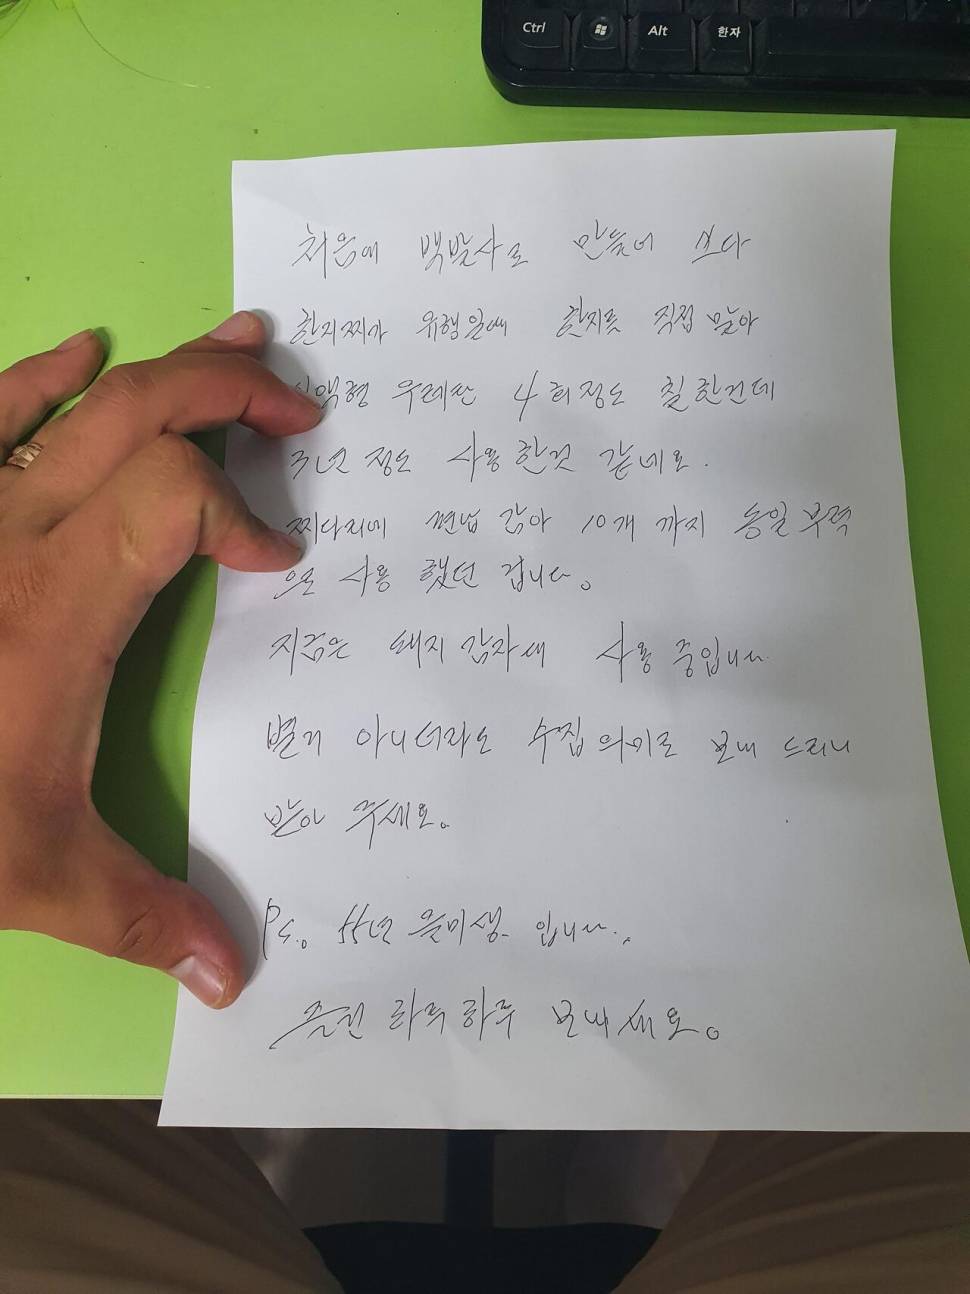 Ctrl Alt 한자
처음에 백발사로 만들어 쓰다
한지찌가 유행일때 한지를 직접 말아
우레탄 4회정도 칠한건데
3년 정도 사용한것 같네요.
찌다리에 편납 감아 10개 까지 동일 부력
으로 사용 했던 겁니다。
지금은 돼지감자대 사용 중입니다
별거 아니더라도 수집의미로 보내 드리니
받아 주세요。
Ps. 55년 을미생 입니다..
즐건 하루하루 보내세요。